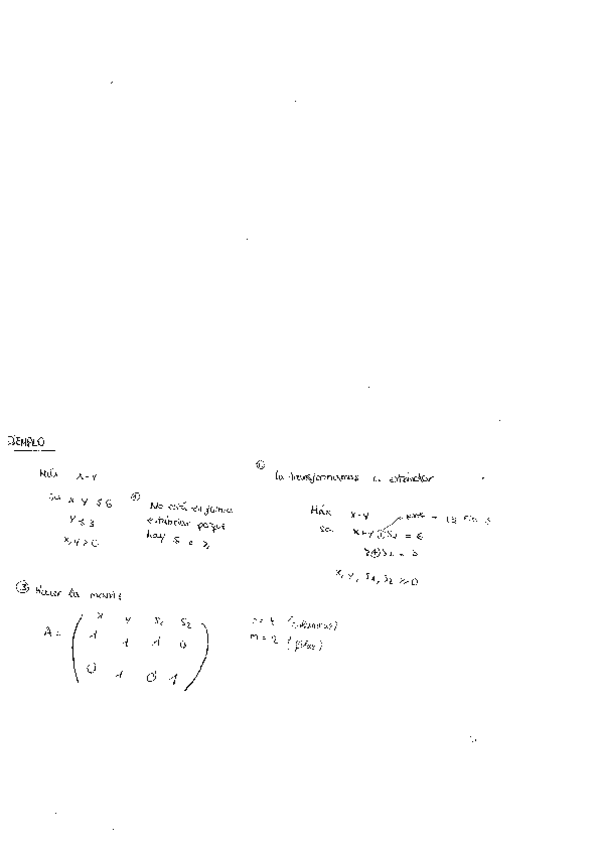 EJEMPLO
Máx x-y
sa x+y ≤ 6
y ≤ 3
x,y ≥ 0
① No está en forma
estándar porque
hay ≤ o ≥
② La transformamos a estándar
Máx x-y
sa x+y+S₁ = 6
y+S₂ = 3
x, y, S₁, S₂ ≥ 0
③ Hacer la matriz
x y S₁ S₂
A = ( 1 1 1 0
0 1 0 1 )
n = 4 (columnas)
m = 2 (filas)